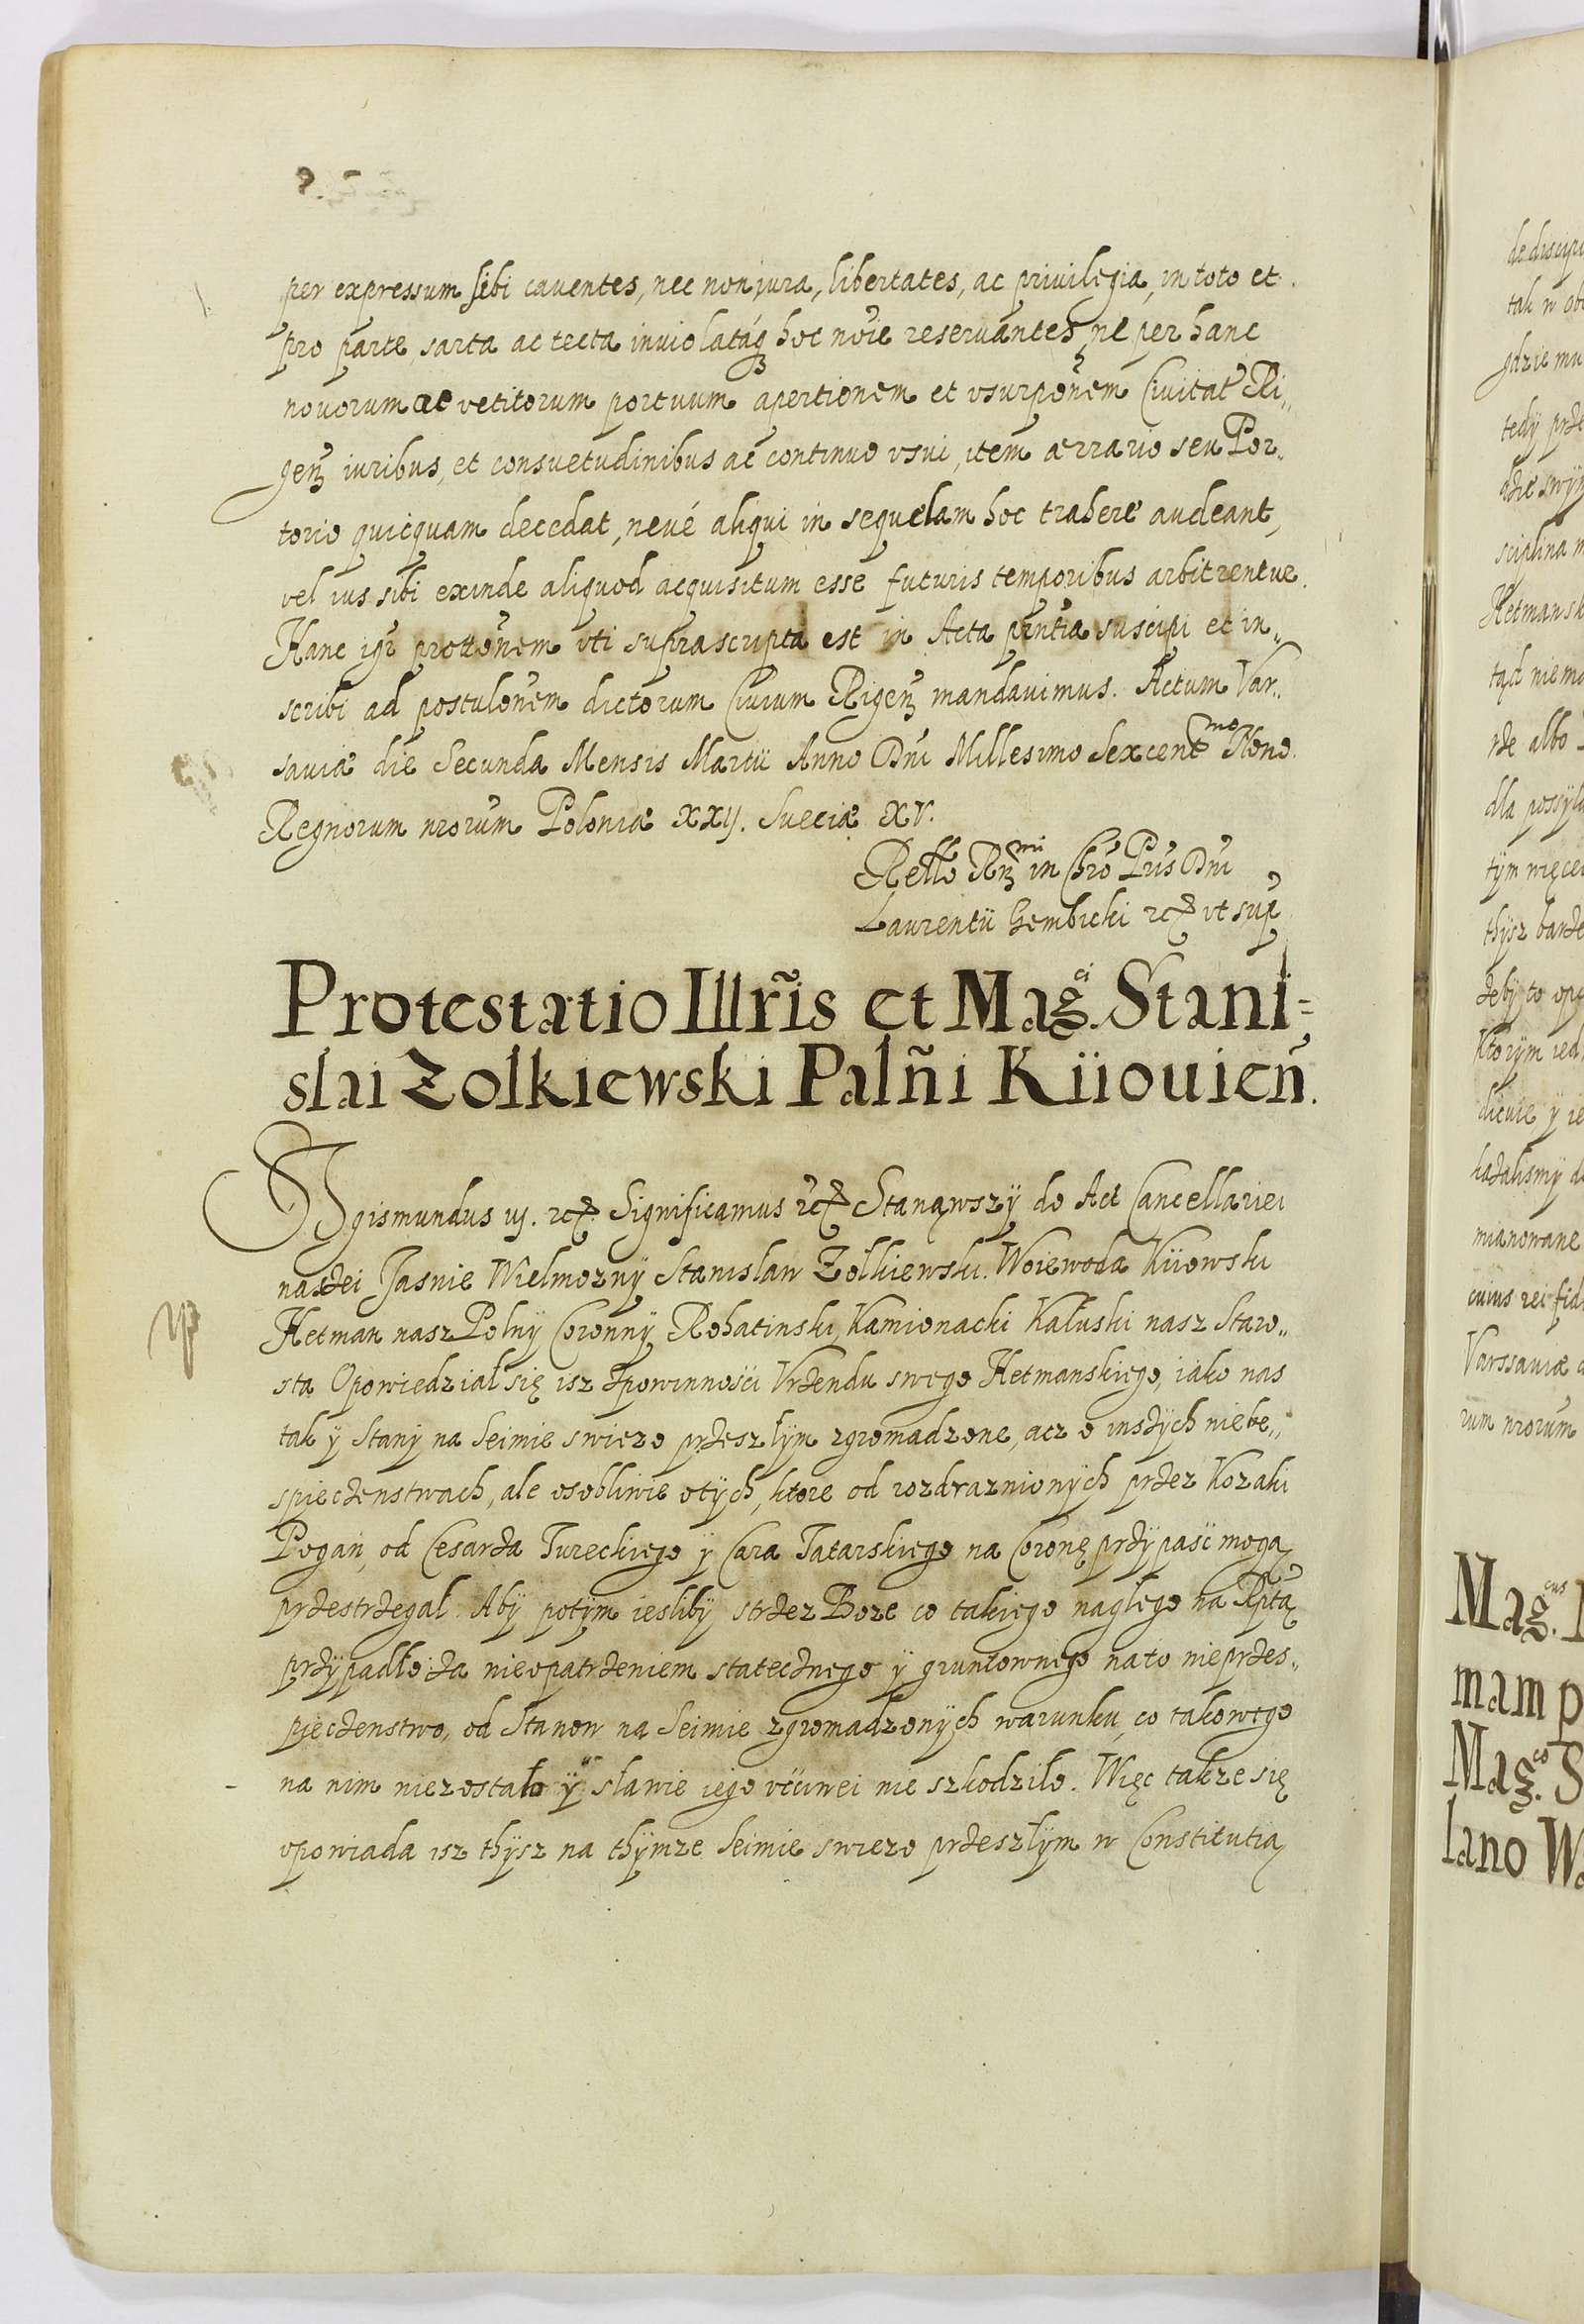 per expressum sibi cauentes, nec non jura, libertates, ac priuilegia, in toto et
pro parte, sarta ac tecta inuiolatáq₃ hoc noĩe reseruantes, ne per hanc
nouorum ac vetitorum portuum apertionem et vsurpoñem Ciuitat Ri„
geñ iuribus, et consuetudinibus ac continuo vsui, item ærrario seu Por„
torio quicquam decedat, neué aliqui in sequelam hoc trahere audeant,
vel ius sibi exinde aliquod acquisitum esse futuris temporibus arbitrentur.
Hanc igr prottoñem vti suprascripta est in Acta pñtia suscipi et in„
scribi ad postuloñem dictorum Ciuium Rigeñ mandauimus. Actum Var„
sauiæ die Secunda Mensis Martii Anno Dni Millesimo Sexcentmo Nono
Regnorum nrorum Poloniæ XXij. Sueciæ XV.
Rello Rmi in Chro Pris Dni
Laurentii Gembicki etc ut sup
Protestatio Illr̃is et Mag.ci Stani=
slai Zolkiewski Palñi Kiiouieñ.
Sigismundus iij. etc. Significamus etc Stanąwszÿ do Act Cancellariei
naszei Jasnie Wielmoznÿ Stanislaw Zolkiewski Woiewoda Kiiowski
Hetman nasz Polnÿ Coronnÿ Rohatinski, Kamionacki Kałuski nasz Staro„
sta Opowiedział się isz zpowinnosci Vrzendu swego Hetmanskiego, iako nas
tak ÿ Stanÿ na Seimie swiezo przeszłÿm zgromadzone, acz o inszÿch niebe„
spieczenstwach, ale osobliwie otÿch, ktore od rozdraznionÿch przez Kozaki
Pogan, od Cesarza Tureckiego ÿ Cara Tatarskiego na Coronę przÿpaśc mogą
przestrzegal. Abÿ potÿm ieslibÿ strzez Boze co takiego nagłego na Rptą
przÿpadło za nieopatrzeniem statecznego ÿ gruntownego na to nieprzes„
pieczenstwo, od Stanow na Seimie zgromadzonÿch warunku, co takowego
na nim niezostało ÿ sławie iego vćciwei nie szkodziło. Więc takze się
opowiada isz thÿsz na thÿmze Seimie swiezo przeszłÿm w Constitutią